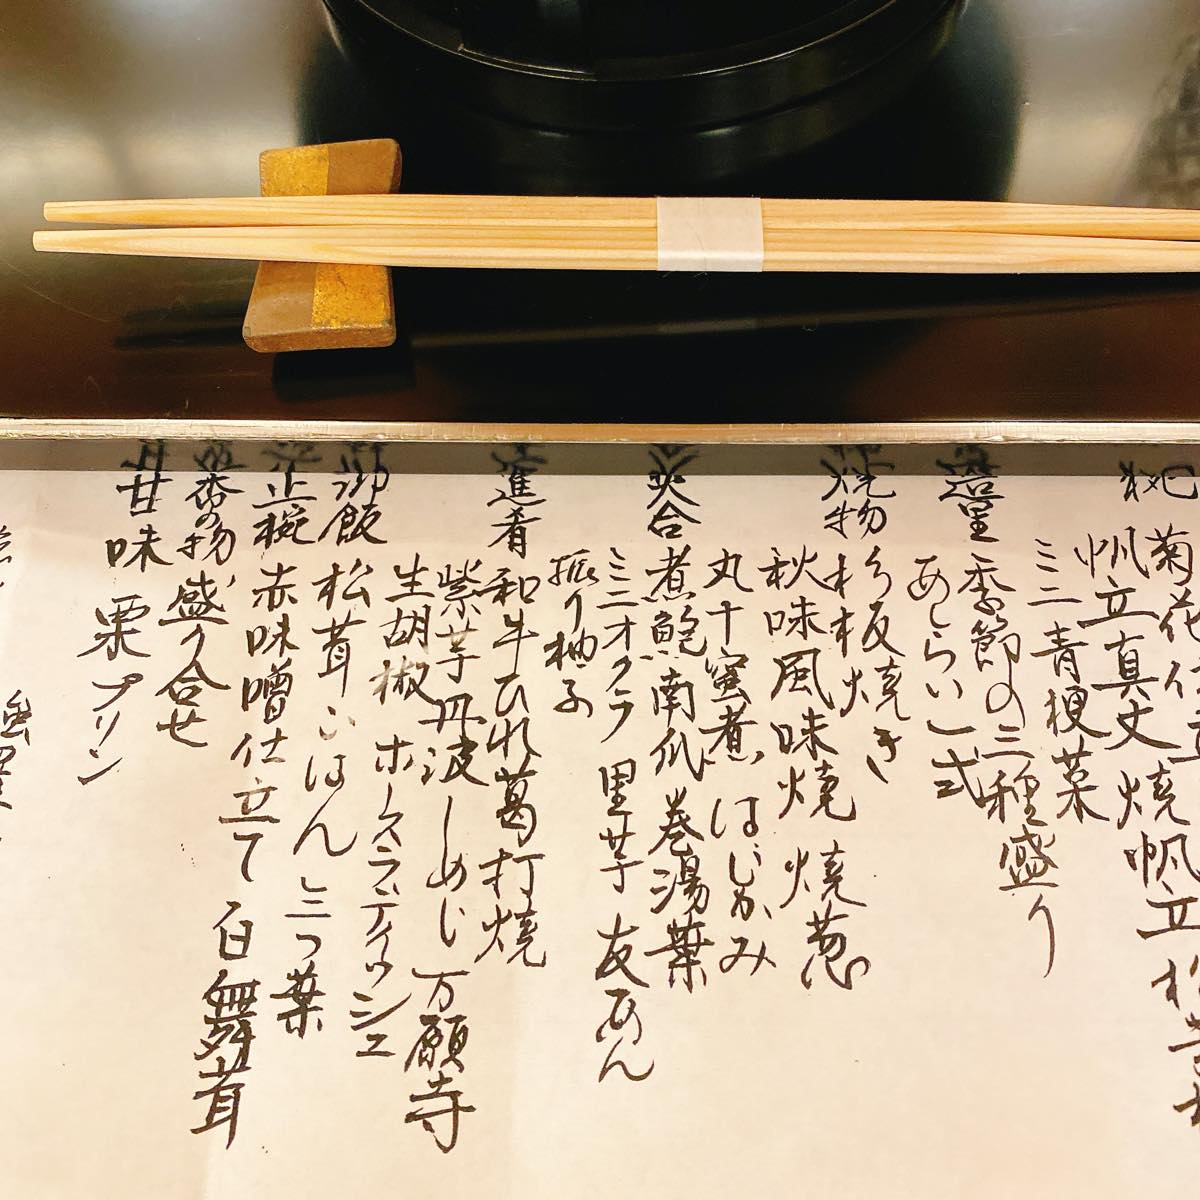 菊花仕立
帆立真丈 焼帆立
ミニ青梗菜
造里 季節の三種盛り
あしらい一式
焼物 杉板焼き
秋味風味焼 焼葱
丸十蜜煮 はじかみ
炊合 煮鮑 南瓜 巻湯葉
ミニオクラ 里芋 友あん
振り柚子
進肴 和牛ひれ葛打焼
紫芋丹波しめじ 万願寺
生胡椒 ホースラディッシュ
御飯 松茸ごはん 三つ葉
止椀 赤味噌仕立て 白舞茸
香の物 盛り合せ
甘味 栗プリン